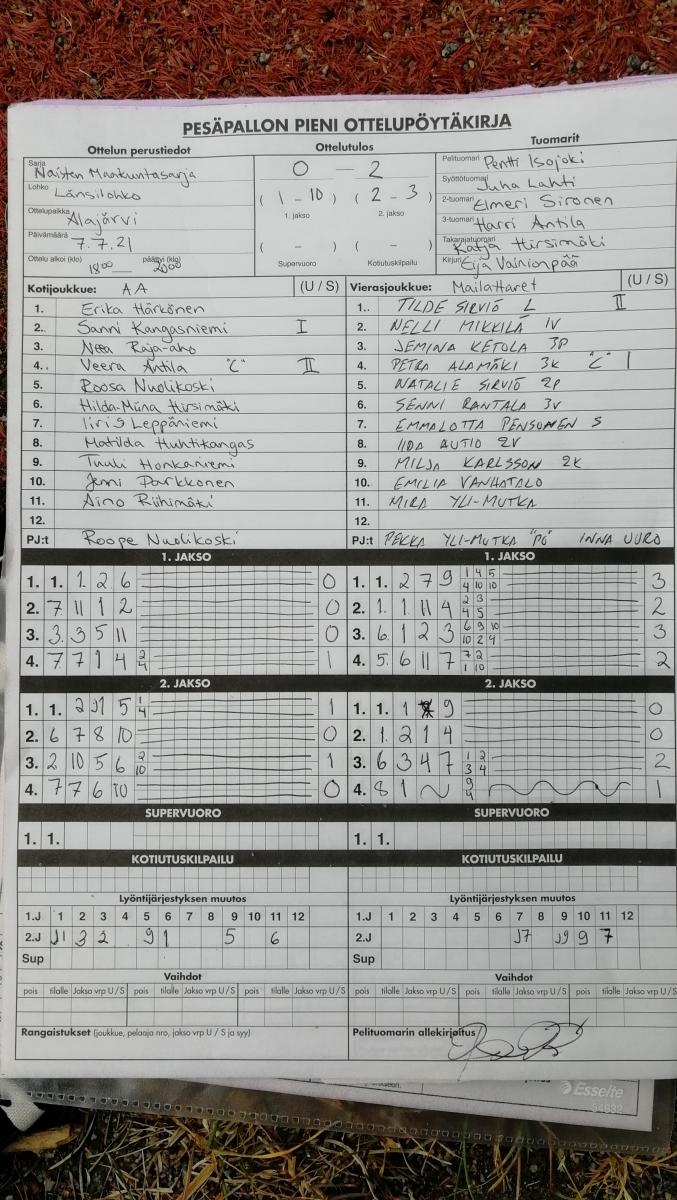 PESÄPALLON PIENI OTTELUPÖYTÄKIRJA
Ottelun perustiedot
Sarja Naisten Maakuntasarja
Lohko Länsilohko
Ottelupaikka Alajärvi
Päivämäärä 7.7.21
Ottelu alkoi (klo) 18 00 päättyi (klo) 20 00
Ottelutulos
0 — 2
( 1 - 10 ) ( 2 - 3 )
1. jakso 2. jakso
( - ) ( - )
Supervuoro Kotiutuskilpailu
Tuomarit
Pelituomari Pentti Isojoki
Syöttötuomari Juha Lahti
2-tuomari Elmeri Sironen
3-tuomari Harri Antila
Takarajatuomari Katja Hirsimäki
Kirjuri Eija Vainionpää
Kotijoukkue: AA (U / S)
1. Erika Härkönen
2. Sanni Kangasniemi I
3. Neea Raja-aho
4. Veera Antila "C" II
5. Roosa Nuolikoski
6. Hilda-Miina Hirsimäki
7. Iiris Leppäniemi
8. Matilda Huhtikangas
9. Tuuli Honkaniemi
10. Jenni Parkkonen
11. Aino Riihimäki
12.
PJ:t Roope Nuolikoski
Vierasjoukkue: Mailattaret (U / S)
1. TILDE SIRVIÖ L II
2. NELLI MIKKILÄ IV
3. JEMINA KETOLA 3P
4. PETRA ALAMÄKI 3K "C" I
5. NATALIE SIRVIÖ 2P
6. SENNI RANTALA 3V
7. EMMALOTTA PENSONEN S
8. IIDA AUTIO 2V
9. MILJA KARLSSON 2K
10. EMILIA VANHATALO
11. MIRA YLI-MUTKA
12.
PJ:t PEKKA YLI-MUTKA "PÖ" INNA UURO
1. JAKSO
1. 1. 1. 2 6 0
2. 7 11 1 2 0
3. 3. 3 5 11 0
4. 7 7 1 4 2 4 1
1. JAKSO
1. 1. 2 7 9 1 4 5 4 10 10 3
2. 1. 1. 11 4 2 3 4 5 2
3. 6. 1 2 3 6 9 10 10 2 4 3
4. 5. 6 11 7 7 2 1 10 2
2. JAKSO
1. 1. 2 J1 5 1 4 1
2. 6 7 8 10 0
3. 2 10 5 6 2 10 1
4. 7 7 6 10 0
2. JAKSO
1. 1. 1 9 0
2. 1. 2 1 4 0
3. 6 3 4 7 1 2 3 4 2
4. 8 1 ~ 9 4 1
SUPERVUORO
1. 1.
SUPERVUORO
1. 1.
KOTIUTUSKILPAILU
KOTIUTUSKILPAILU
Lyöntijärjestyksen muutos
1.J 1 2 3 4 5 6 7 8 9 10 11 12
2.J J1 3 2 9 1 5 6
Sup
Lyöntijärjestyksen muutos
1.J 1 2 3 4 5 6 7 8 9 10 11 12
2.J J7 J9 9 7
Sup
Vaihdot
pois tilalle Jakso vrp U / S pois tilalle Jakso vrp U / S
Vaihdot
pois tilalle Jakso vrp U / S pois tilalle Jakso vrp U / S
Rangaistukset (joukkue, pelaaja nro, jakso vrp U / S ja syy)
Pelituomarin allekirjoitus
Esselte
54832